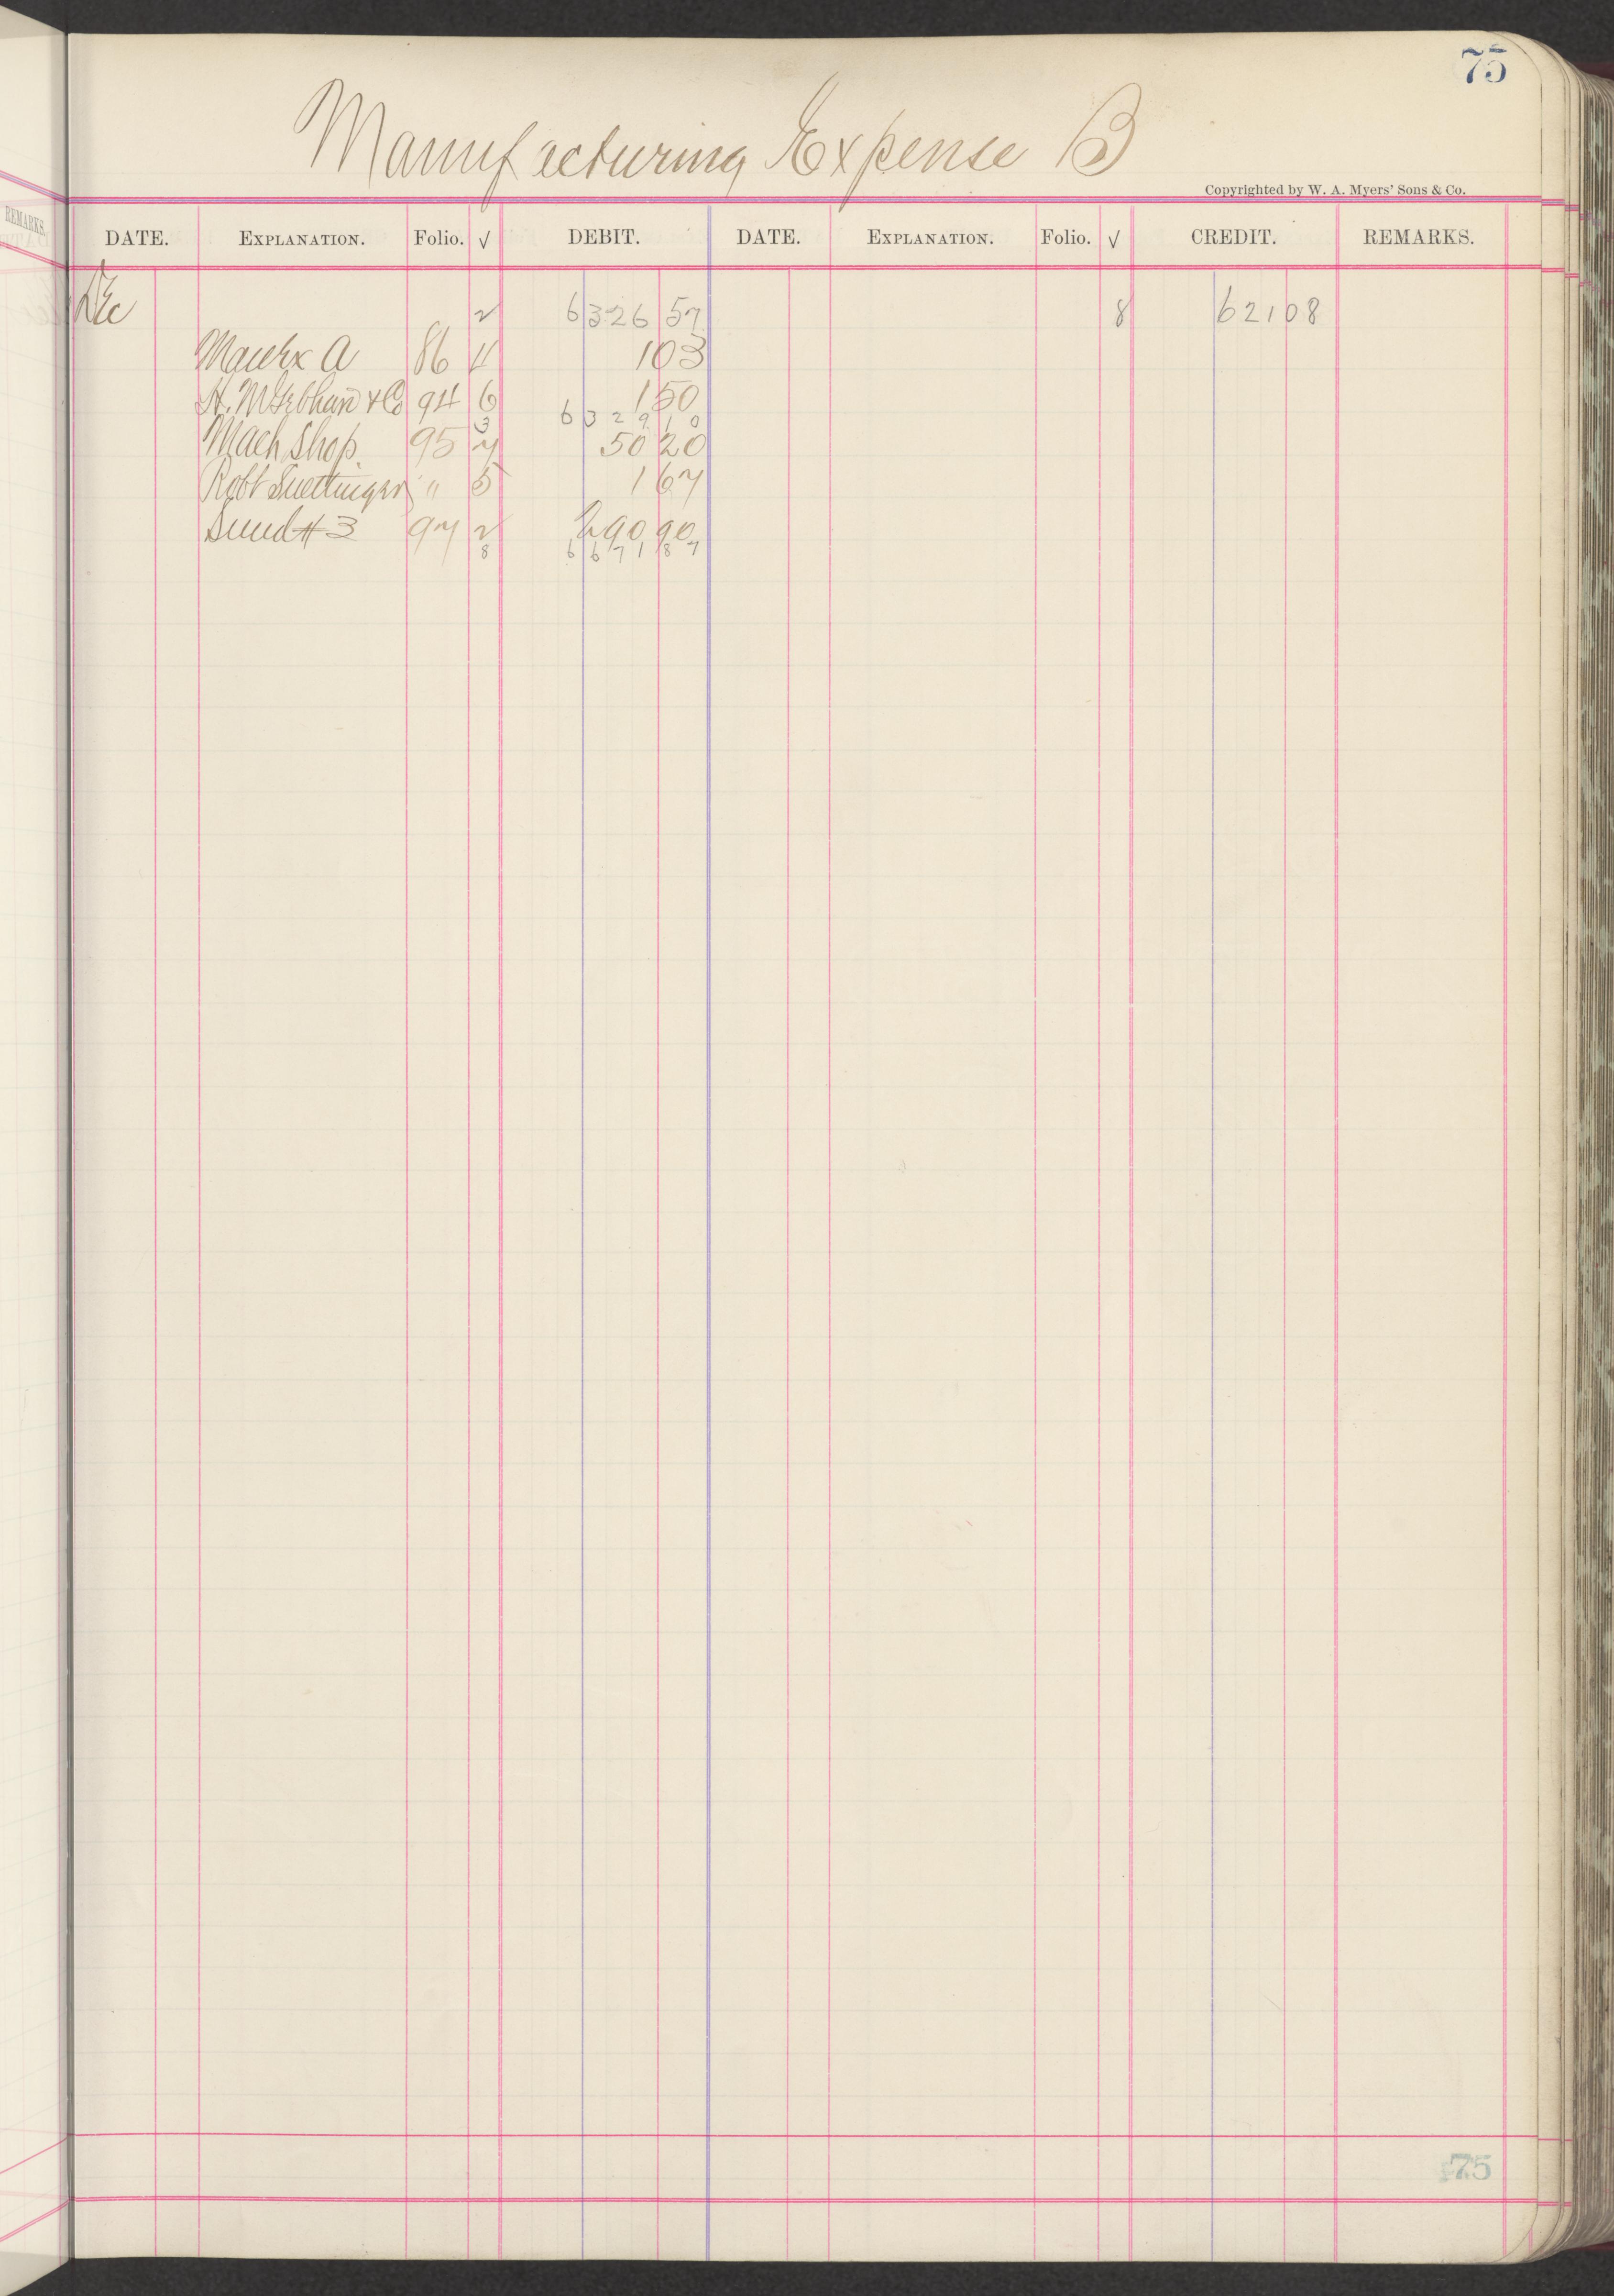 75
Manufacturing Expense B
Copyrighted by W. A. Myers' Sons & Co.
REMARKS.
DATE. EXPLANATION. Folio. √ DEBIT. DATE. EXPLANATION. Folio. √ CREDIT. REMARKS.
Dec 2 6326 57 8 621 08
A 86 4 1 03
& Co 94 6 1 50
3 6329 10
Mach Shop 95 7 50 20
Robt Suettinger " 5 1 67
Sund # 3 97 2 290 90
8 6671 87
75